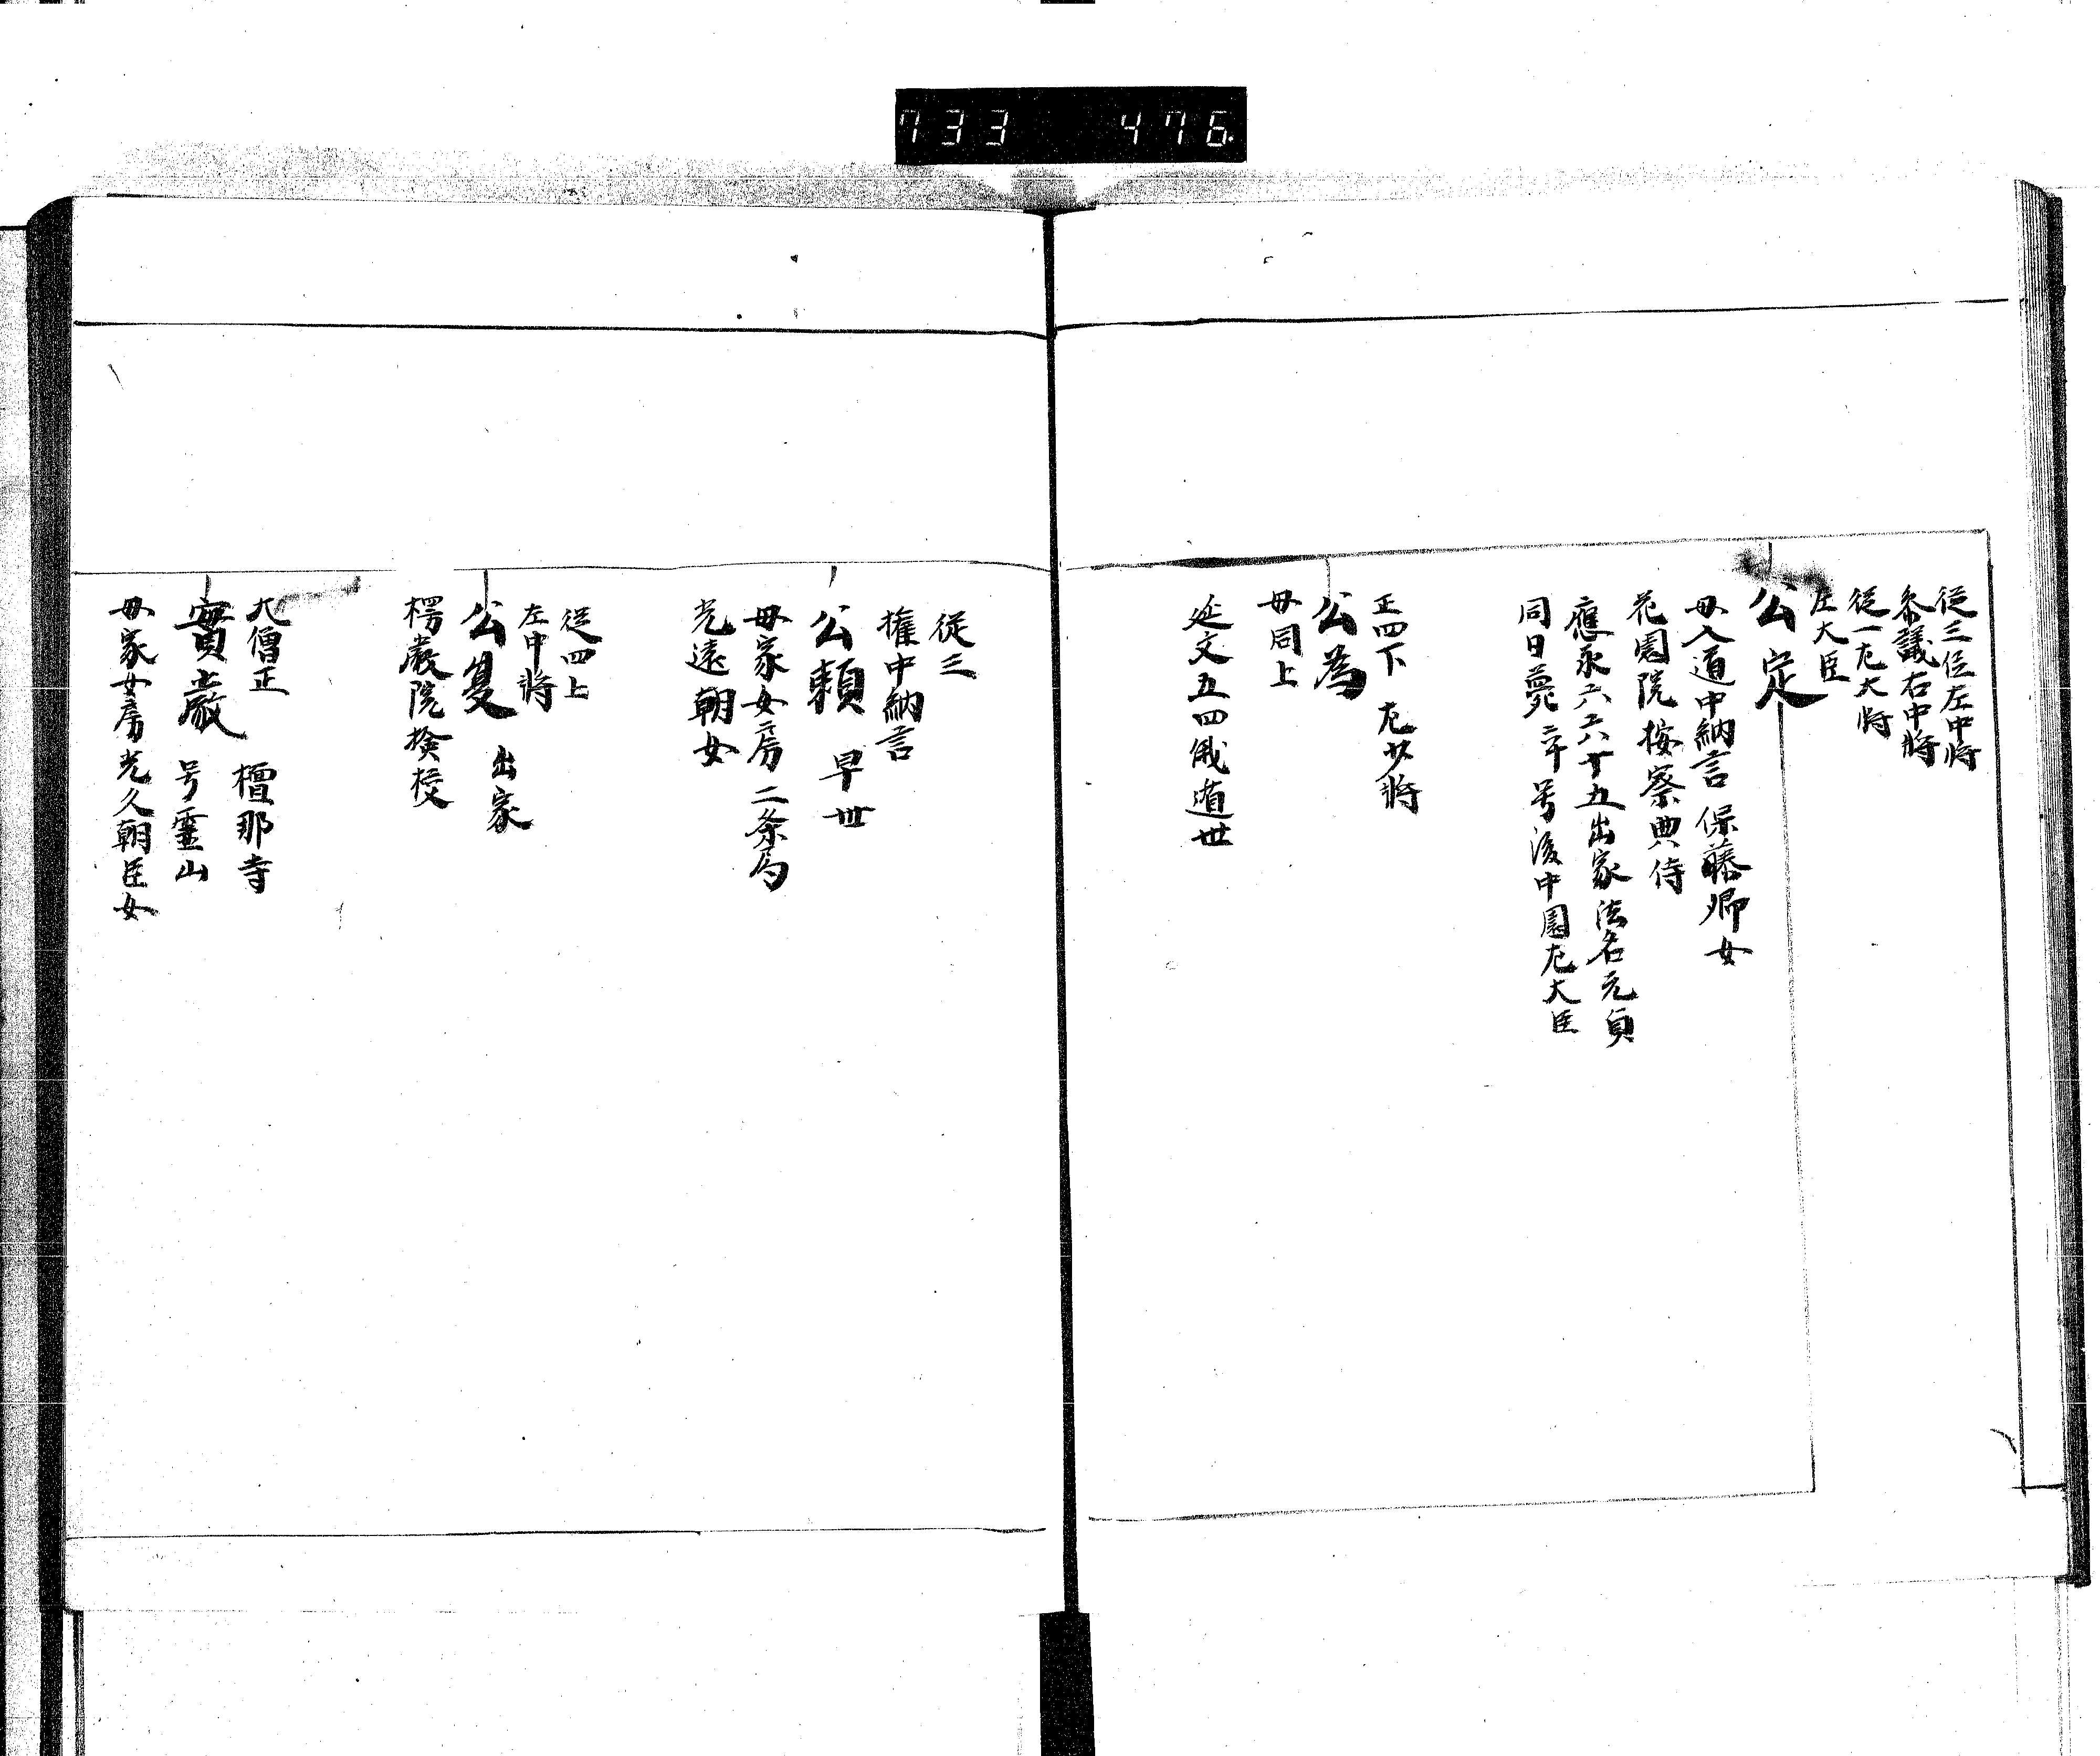 733 476
従三位左中将
参議右中将
従一左大将
左大臣
公定
母入道中納言保藤卿女
花園院按察典侍
應永六六十五出家法名元貞
同日薨六十号後中園左大臣
正四下左少将
公為
母同上
延文五四俄遁世
従三
権中納言
公頼 早世
母家女房二条局
光遠朝女
従四上
左中将
公夏 出家
楞嚴院撿挍
大僧正 檀那寺
實嚴 号霊山
母家女房光久朝臣女